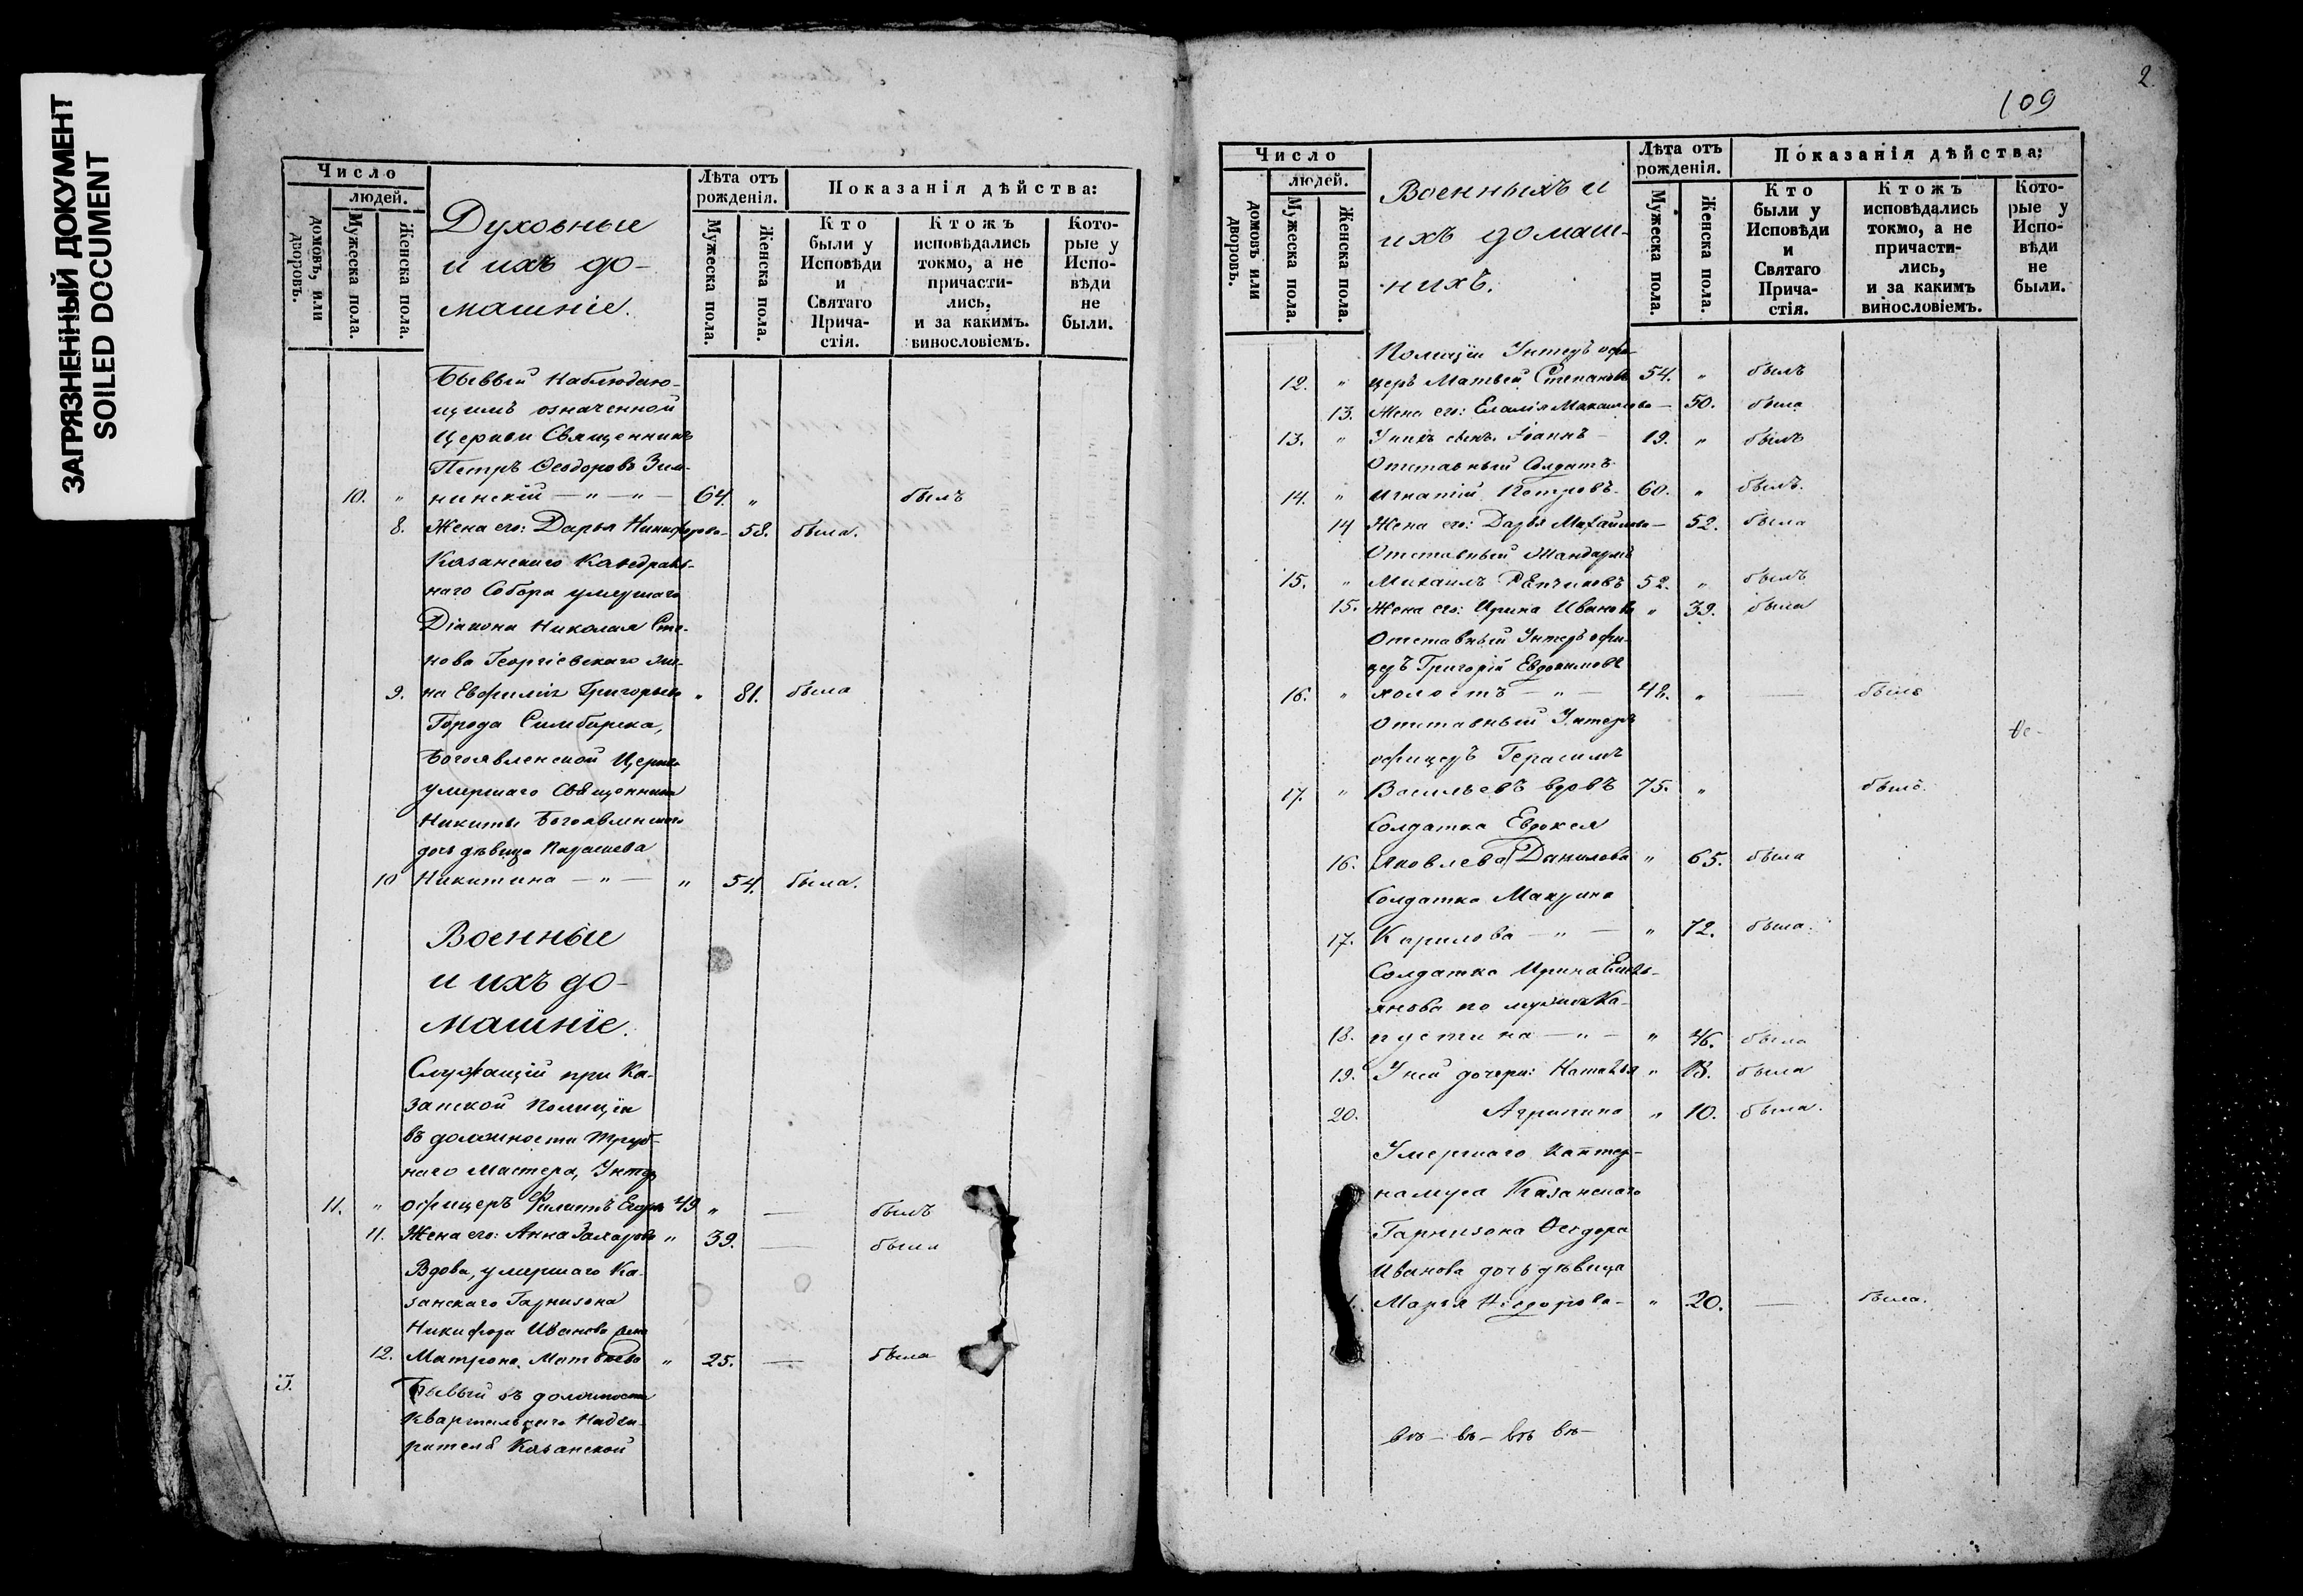 ЗАГРЯЗНЕННЫЙ ДОКУМЕНТ
SOILED DOCUMENT
Число
людей.
домовъ, или дворовъ.
Мужеска пола.
Женска пола.
Духовные
и ихъ до-
машніе.
Лѣта отъ
рожденія.
Мужеска пола.
Женска пола.
Показанія дѣйства:
Кто
были у
Исповѣди
и
Святаго
Прича-
стія.
Ктожъ
исповѣдались
токмо, а не
причасти-
лись,
и за какимъ.
винословіемъ.
Кото-
рые у
Испо-
вѣди
не
были.
Бывый наблюдаю-
щимъ означенной
Церкви Священникъ
Петръ Ѳеодоровъ
10. " нинскій — " — " — 64. " былъ
8. Жена его: Дарья Никифорова — 58. была.
Казанскаго Каѳедраль-
наго Собора умершаго
Діакона Николая
Георгіевскаго
9. на Евфимія Григорьева " 81. была
Города Симбирска,
Богоявленской Церкви
умершаго Священника
Никиты Богоявленскаго
дочь дѣвица
10 Никитина — " — " 54. была.
Военные
и ихъ до-
машніе.
Служащій при Ка-
занской Полиціи
въ должности Труб-
наго Мастера, Унтеръ
11. " офицеръ Филиппъ 49 " — былъ
11. Жена его: Анна Захарова " 39. — была
Вдова, умершаго Ка-
занскаго Гарнизона
Никифора Иванова жена
12. Матрона Матвѣева " 25. — была
3. Бывый въ должности
Квартальнаго Надзи-
рателя Казанской
2
109
Число
людей.
домовъ или дворовъ.
Мужеска пола.
Женска пола.
Военныхъ и
ихъ домаш-
нихъ.
Лѣта отъ
рожденія.
Мужеска пола.
Женска пола.
Показанія дѣйства:
Кто
были у
Исповѣди
и
Святаго
Прича-
стія.
Ктожъ
исповѣдались
токмо, а не
причасти-
лись,
и за какимъ
винословіемъ.
Кото-
рые у
Испо-
вѣди
не
были.
Полиціи Унтеръ офи-
12. " церъ Матвей Степановъ 54. " былъ
13. Жена его: — 50. была
13. " У нихъ сынъ Іоаннъ — 19. " былъ
Отставный Солдатъ
14. " Игнатій Петровъ. 60. " былъ.
14 Жена его: Дарья Михайлова — 52. была
Отставный Жандармъ
15. " Михаилъ 52. " былъ
15. Жена его: Ирина Иванова " 39. была
Отставный Унтеръ офи-
церъ Григорій Евдокимовъ
16. " холостъ — " — 48. " — былъ
Отставный Унтеръ
офицеръ Герасимъ
17. " Васильевъ вдовъ 75. " былъ.
Солдатка Евдокея
16. Яковлева Данилова " 65. была
Солдатка Макрина
17. Кирилова — " — " 72. была.
Солдатка Ирина Емель-
янова по мужѣ Ка-
18. пустина — " — " 46. была
19. У ней дочери: Наталья " 13. была
20. Агрипина " 10. была.
Умершаго Каптер-
намуса Казанскаго
Гарнизона Ѳеодора
Иванова дочь дѣвица
Марья Ѳеодорова — " 20. — была.